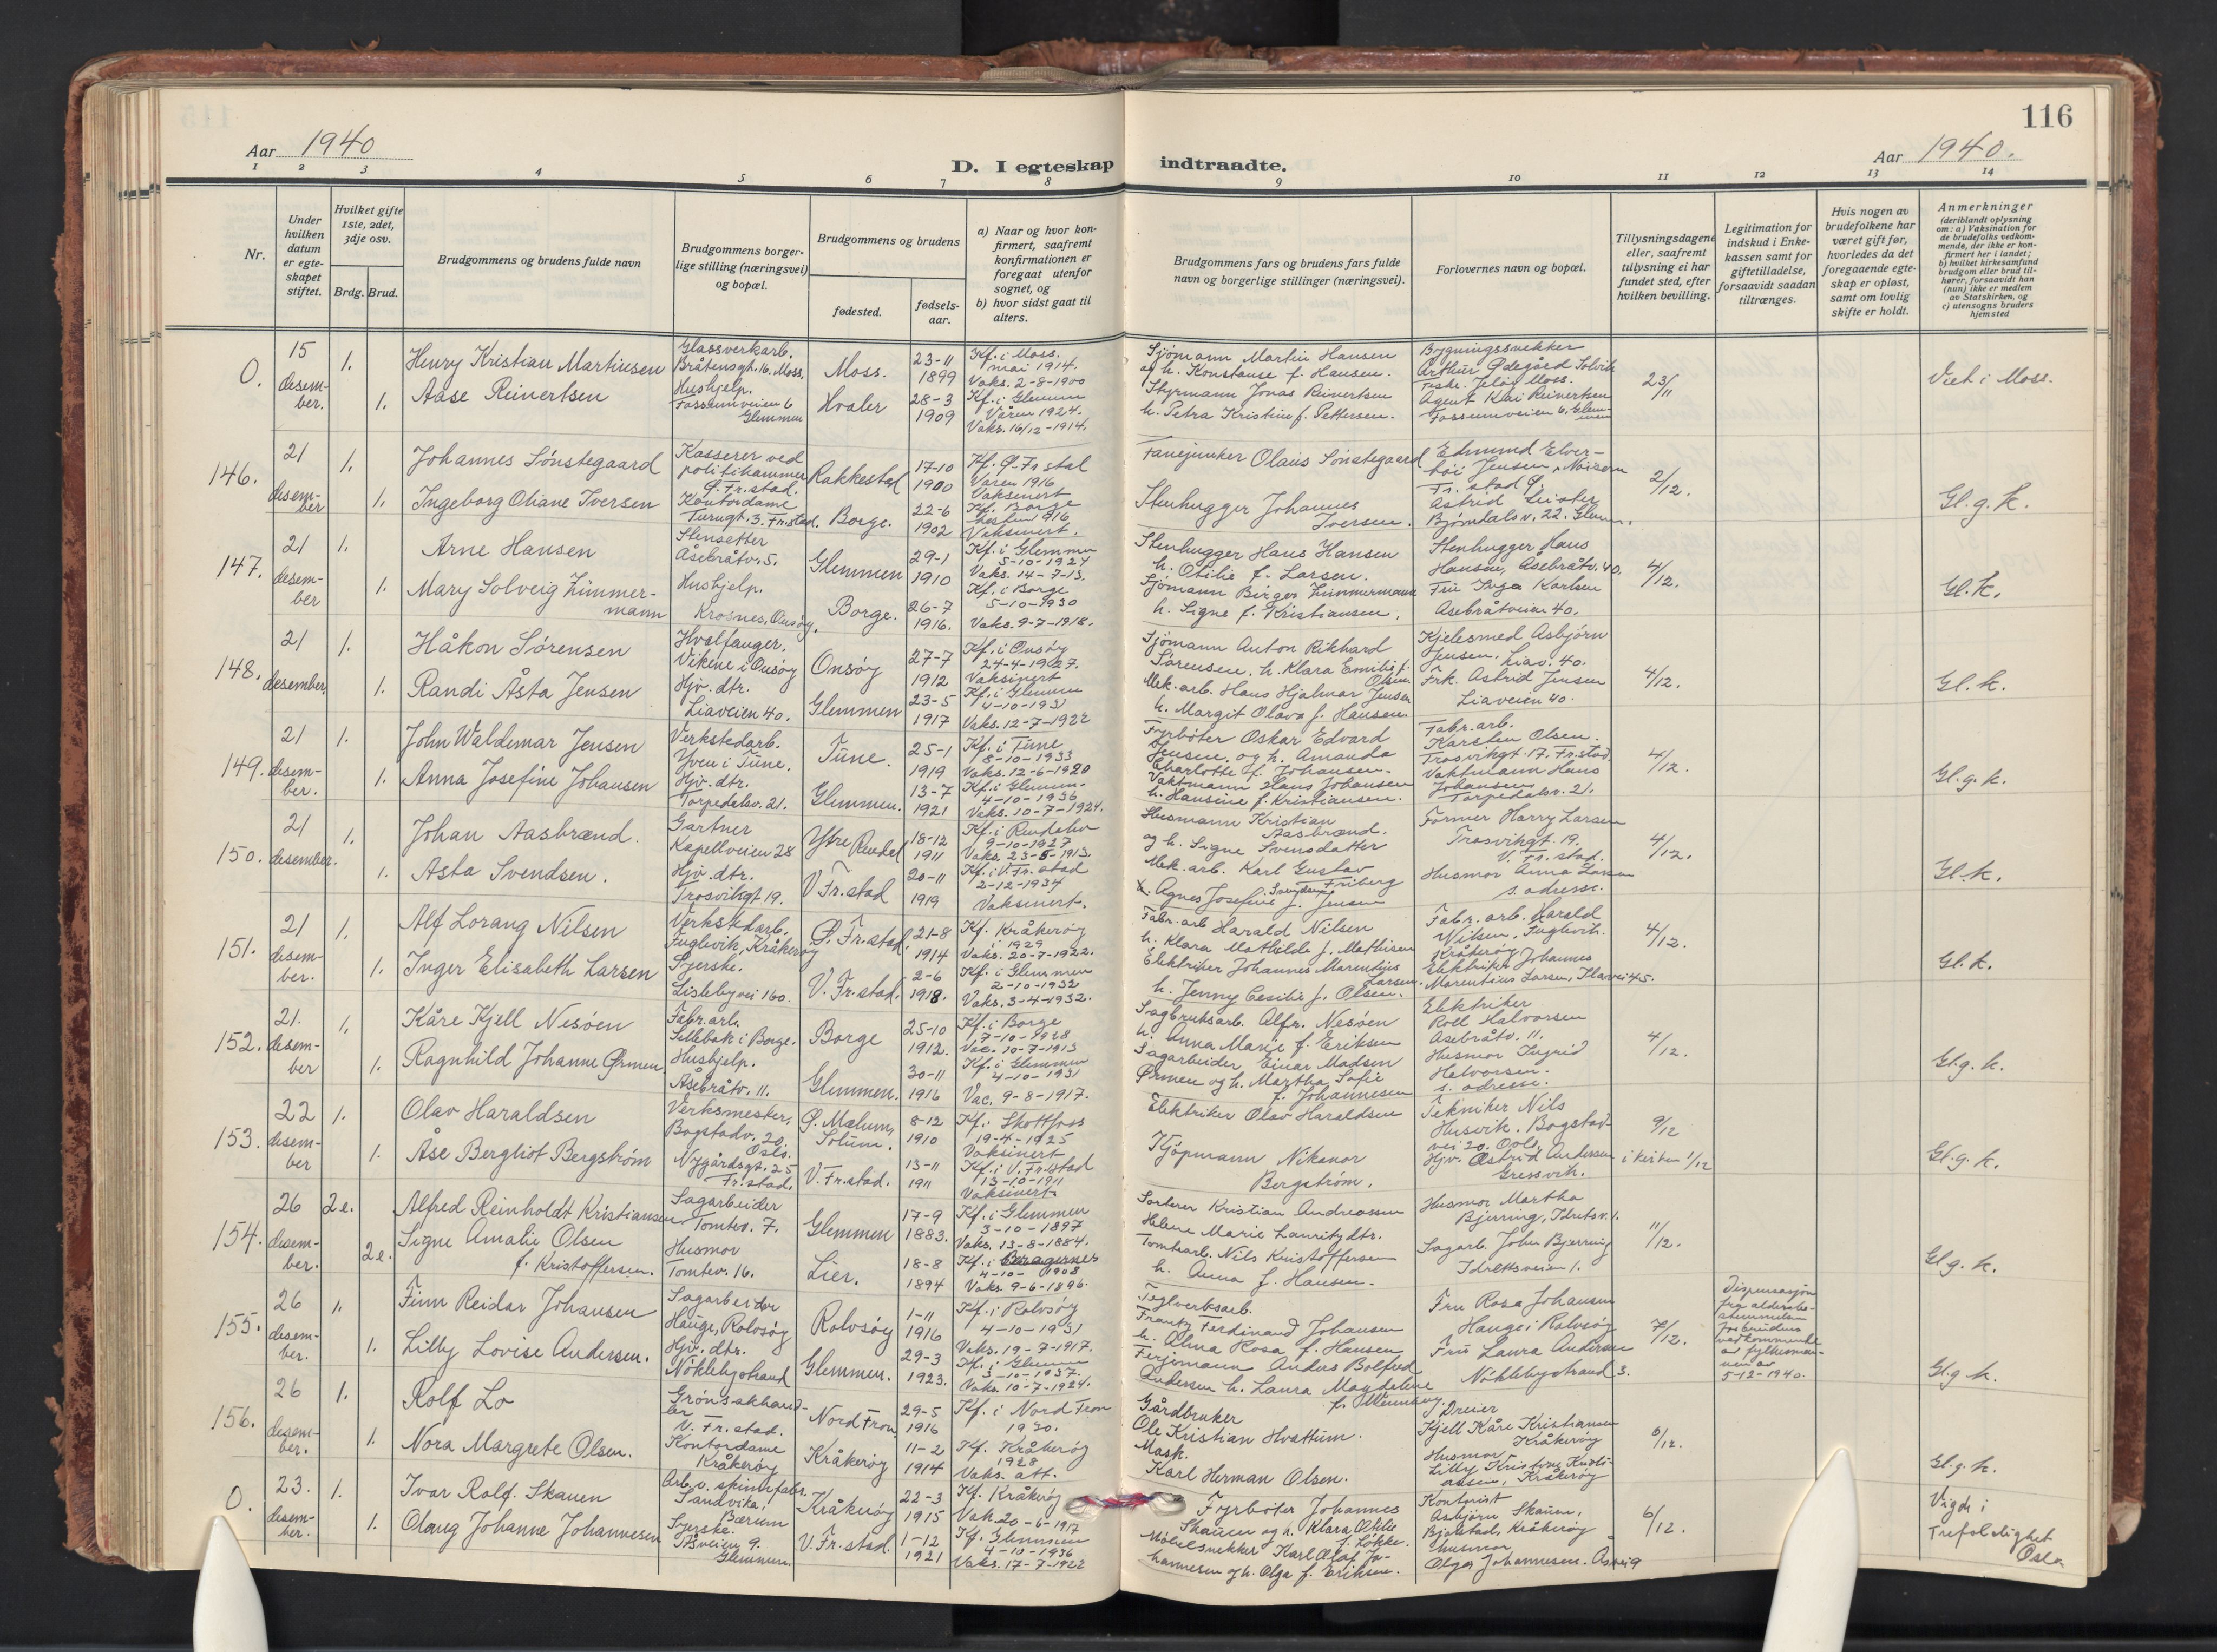 116
Aar 1940
Aar 1940.
D. I egteskap indtraadte.
1 2 3 4 5 6 7 8 9 10 11 12 13 14
Nr.
Under hvilken datum er egte-skapet stiftet.
Hvilket gifte 1ste, 2det, 3dje osv.
Brdg. Brud.
Brudgommens og brudens fulde navn
Brudgommens borger-lige stilling (næringsvei) og bopæl.
Brudgommens og brudens
fødested.
fødsels-aar.
a) Naar og hvor kon-firmert, saafremt konfirmationen er foregaat utenfor sognet, og
b) hvor sidst gaat til alters.
Brudgommens fars og brudens fars fulde navn og borgerlige stillinger (næringsvei).
Forlovernes navn og bopæl.
Tillysningsdagene eller, saafremt tillysning ei har fundet sted, efter hvilken bevilling.
Legitimation for indskud i Enke-kassen samt for giftetilladelse, forsaavidt saadan tiltrænges.
Hvis nogen av brudefolkene har været gift før, hvorledes da det foregaaende egte-skap er opløst, samt om lovlig skifte er holdt.
Anmerkninger
(deriblandt oplysning om: a) Vaksination for de brudefolks vedkom-mende, der ikke er kon-firmert her i landet; b) hvilket kirkesamfund brudgom eller brud til-hører, forsaavidt han (hun) ikke er medlem av Statskirken, og c) utensogns bruders hjemsted
0. 15 desem-ber. 1. Henry Kristian Martinsen Glassverkarb. Bråtengt. 16, Moss. Moss. 23-11 1899 Kf. i Moss. mai 1914. Vaks. 2-8-1900
1. Aase Reinertsen Hushjelp. Fossumveien 6 Glemmen Hvaler 28-3 1909 Kf. i Glemmen Våren 1924. Vaks. 16/12-1914.
Sjömann Martin Hansen og h. Konstanse f. Hansen.
Styrmann Jonas Reinertsen h. Petra Kristine f. Pettersen.
Bygningssnekker Arthur Ødegård Solvik Jeløy Moss.
Agent Kai Reinertsen Fossumveien 6, Glem-men
23/11 Viet i Moss.
146. 21 desem-ber 1. Johannes Sönstegaard Kasserer ved politikammer Ø. Fr.stad. Rakkestad 17-10 1900 Kf. Ø. Fr.stad Våren 1916 Vaksinert
1. Ingeborg Oliane Iversen Kontordame Turngt. 3. Fr.stad. Borge. 22-6 1902 Kf. Borge høsten 1916 Vaksinert.
Fanejunker Olaus Sönstegaard
Stenhugger Johannes Iversen.
Edmund Elver-höi Jensen, Fr.stad Ø.
Astrid Bjørndalsv. 22. Glem.
2/12. Gl.g.k.
147. 21 desem-ber 1. Arne Hansen Stensetter Åsebråtv. 5. Glemmen 29-1 1910 Kf. i Glemmen 5-10-1924 Vaks. 14-7-13.
1. Mary Solveig Zimmer-mann Hushjelp. Krosnes, Onsöy. Borge. 26-7 1916. Kf. i Borge 5-10-1930 Vaks. 9-7-1918.
Stenhugger Hans Hansen h. Otilie f. Larsen.
Sjömann Birger Zimmermann h. Signe f. Kristiansen.
Stenhugger Hans Hansen, Åsebråtv. 40.
Fru Inga Karlsen Åsebråtveien 40.
4/12. Gl.k.
148. 21 desember. 1. Håkon Sörensen Hvalfanger. Vikene i Onsöy Onsöy 27-7 1912 Kf. i Onsöy 24-4-1927. Vaksinert
1. Randi Åsta Jensen Hjv. dtr. Liaveien 40. Glemmen 23-5 1917 Kf. i Glemmen 4-10-1931 Vaks. 12-7-1922
Sjömann Anton Rikhard Sörensen, h. Klara Emilie f. Olsen.
Mek. arb. Hans Hjalmar Jensen h. Margit Olava f. Hansen.
Kjelesmed Asbjörn Jensen, Liav. 40.
Frk. Astrid Jensen Liaveien 40.
4/12. Gl.k.
149. 21 desem-ber. 1. John Waldemar Jensen Verkstedarb. Yven i Tune. Tune. 25-1 1919 Kf. i Tune 8-10-1933 Vaks. 12-6-1920
1. Anna Josefine Johansen Hjv. dtr. Torpedalsv. 21. Glemmen. 13-7 1921 Kf. i Glemmen. 4-10-1936 Vaks. 10-7-1924.
Fyrböter Oskar Edvard Jensen, og h. Amanda Charlotte f. Johansen.
Vaktmann Hans Johansen h. Hansine f. Kristiansen.
Fabr. arb. Karsten Olsen. Trosvikgt. 17. Fr.stad.
Vaktmann Hans Johansen Torpedalsv. 21.
4/12. Gl.g.k.
150. 21 desember. 1. Johan Aasbrænd. Gartner Kapellveien 28 Ytre Rendal 18-12 1911 Kf. i Rendalen 9-10-1927 Vaks. 23-5-1913.
1. Asta Svendsen. Hjv. dtr. Trosvikgt 19. V. Fr.stad 20-11 1919 Kf. i V. Fr.stad 2-12-1934 Vaksinert.
Husmann Kristian Aasbrænd. og h. Signe Svensdatter
Mek. arb. Karl Gustav Friberg Svendsen h. Agnes Josefine f. Jensen
Former Harry Larsen Trosvikgt. 19. V. Fr.stad.
Husmor Anna Larsen s. adresse.
4/12. Gl.k.
151. 21 desem-ber. 1. Alf Lorang Nilsen Verkstedarb. Fuglevik, Kråkeröy Ø. Fr.stad. 21-8 1914 Kf. Kråkeröy i 1929 Vaks. 20-7-1922.
1. Inger Elisabeth Larsen Syerske. Lislebyvei 160. V. Fr.stad. 2-6 1918. Kf. i Glemmen 2-10-1932 Vaks. 3-4-1932.
Fabr. arb Harald Nilsen h. Klara Mathilde f. Mathisen
Elektriker Johannes Marentius Larsen. h. Jenny Cesilie f. Olsen.
Fabr. arb. Harald Nilsen, Fuglevik. Kråkeröy
Elektriker Johannes Marentius Larsen,
4/12. Gl.k.
152. 21. desem-ber 1. Kåre Kjell Nesöen Fabr. arb. Sellebakk i Borge. Borge 25-10 1912. Kf. i Borge 7-10-1928 Vac. 10-7-1913
1. Ragnhild Johanne Ørmen Hushjelp. Åsebråtv. 11. Glemmen. 30-11 1916 Kf. i Glemmen 4-10-1931 Vac. 9-8-1917.
Sagbruksarb. Alfr. Nesöen h. Anna Marie f. Eriksen
Sagarbeider Einar Madsen Ørmen og h. Martha Sofie f. Johannesen
Elektriker Rolf Halvorsen Åsebråtv. 11.
Husmor Ingrid Halvorsen. s. adresse.
4/12. Gl.g.k.
153. 22 desem-ber 1. Olav Haraldsen Verksmester. Bogstadv. 20. Oslo. Ø. Mælum, Solum. 8-12 1910 Kf. i Skotfoss 19-4-1925 Vaksinert
1. Åse Bergliot Bergström Nygårdsgt. 25 Fr.stad. V. Fr.stad. 13-11 1911 Kf. i V. Fr.stad 13-10-1911 Vaksinert
Elektriker Olav Haraldsen
Kjöpmann Nikanor Bergström.
Tekniker Nils Husvik. Bogstad-vei 20. Oslo
Hjv. Astrid Andersen Gressvik.
9/12 i kirken 1/12 Gl.g.k.
154. 26 desem-ber. 2e. Alfred Reinholdt Kristiansen Sagarbeider Tomtev. 7. Glemmen 17-9 1883. Kf. i Glemmen 3-10-1897 Vaks. 13-8-1884.
2e. Signe Amalie Olsen f. Kristoffersen. Husmor Tomtev. 16. Lier. 18-8 1894 Kf. i Bragernes 4-10-1908 Vaks. 9-6-1896.
Sorterer Kristian Andreassen Helene Marie Lauritzdtr.
Tomtearb. Nils Kristoffersen h. Anna f. Hansen.
Husmor Martha Bjerring, Idretsv. 1.
Sagarb. John Bjerring Idrettsveien 1.
11/12. Gl.g.k.
155. 26 desem-ber. 1. Finn Reidar Johansen Sagarbeider Hauge, Rolvsöy Rolvsöy 1-11 1916 Kf. i Rolvsöy 4-10-1931 Vaks. 19-7-1917.
1. Lilly Lovise Andersen. Hjv. dtr. Nöklebystrand Glemmen. 29-3 1923. Kf. i Glemmen 3-10-1937. Vaks. 10-7-1924.
Teglverksarb. Frantz Ferdinand Johansen h. Alma Rosa f. Hansen
Ferjemann Anders Bolfred Andersen h. Laura Magdalene f.
Fru Rosa Johansen Hauge i Rolvsöy
Fru Laura Andersen Nöklebystrand 3.
7/12. Dispensasjon fra aldersbe-stemmelsen for brudens vedkommende av fylkesman-nen av 5-12-1940. Gl.g.k.
156. 26 desem-ber. 1. Rolf Lo Grönsakhand-ler V. Fr.stad. Nord Fron 29-5 1916 Kf. i Nord Fron 1930.
1. Nora Margrete Olsen. Kontordame Kråkeröy Kråkeröy 11-2 1914 Kf. Kråkeröy 1928 Vaks. att.
Gårdbruker Ole Kristian Hvattum.
Mask. Karl Herman Olsen.
Dreier Kjell Kåre Kristiansen Kråkeröy
Husmor Lilly Kristi-ansen, Kråkeröy
6/12. Gl.g.k.
0. 23. desem-ber. 1. Ivar Rolf Skauen Arb. v. spinnfabr. Sandvika, Bærum Kråkeröy 22-3 1915 Kf. Kråkeröy Vak. 20-6-1917
1. Olaug Johanne Johannesen Syerske. Åsveien 9. Glemmen. V. Fr.stad. 1-12 1921 Kf. Glemmen 4-10-1936 Vaks. 17-7-1922
Fyrböter Johannes Skauen og h. Klara Otilie f. Lökke.
Möbelsnekker Karl Olaf Jo-hannesen og h. Olga f. Eriksen.
Kontorist Asbjörn Skauen, Bjölstad, Kråkeröy
Husmor Olga Johannesen. Åsvei 9
6/12. Vigde i Trefoldighet Oslo